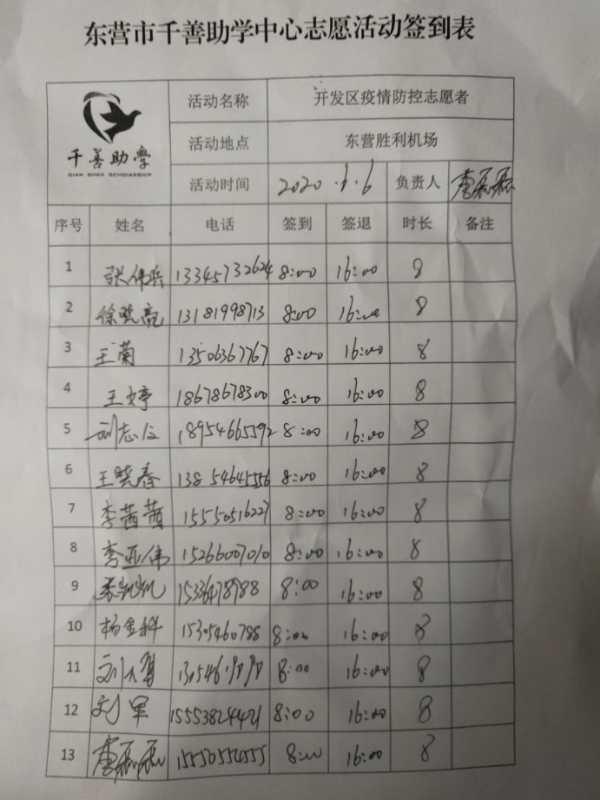 东营市千善助学中心志愿活动签到表
千善助学
QIAN SHAN SCHOLARSHIP
活动名称 开发区疫情防控志愿者
活动地点 东营胜利机场
活动时间 2020.1.6 负责人 李磊磊
序号 姓名 电话 签到 签退 时长 备注
1 张伟兵 13345732624 8:00 16:00 8
2 徐晓亮 13181998713 8:00 16:00 8
3 王菊 13506367767 8:00 16:00 8
4 王婷 18678678300 8:00 16:00 8
5 刘志仁 18954665592 8:00 16:00 8
6 王晓春 13854645556 8:00 16:00 8
7 李茜茜 15550516227 8:00 16:00 8
8 李亚伟 15266007010 8:00 16:00 8
9 8:00 16:00 8
10 杨金科 15305460788 8:00 16:00 8
11 8:00 16:00 8
12 刘军 15553824421 8:00 16:00 8
13 李磊磊 8:00 16:00 8